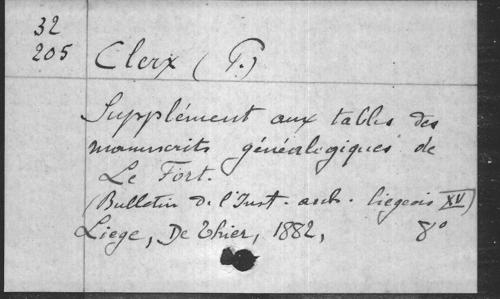 32
205
Clerx (P.)
Supplément aux tables des
manuscrits généalogiques de
Le Fort.
(Bulletin de l'Inst. arch. liegeois XV)
Liege, De Thier, 1882, 8°